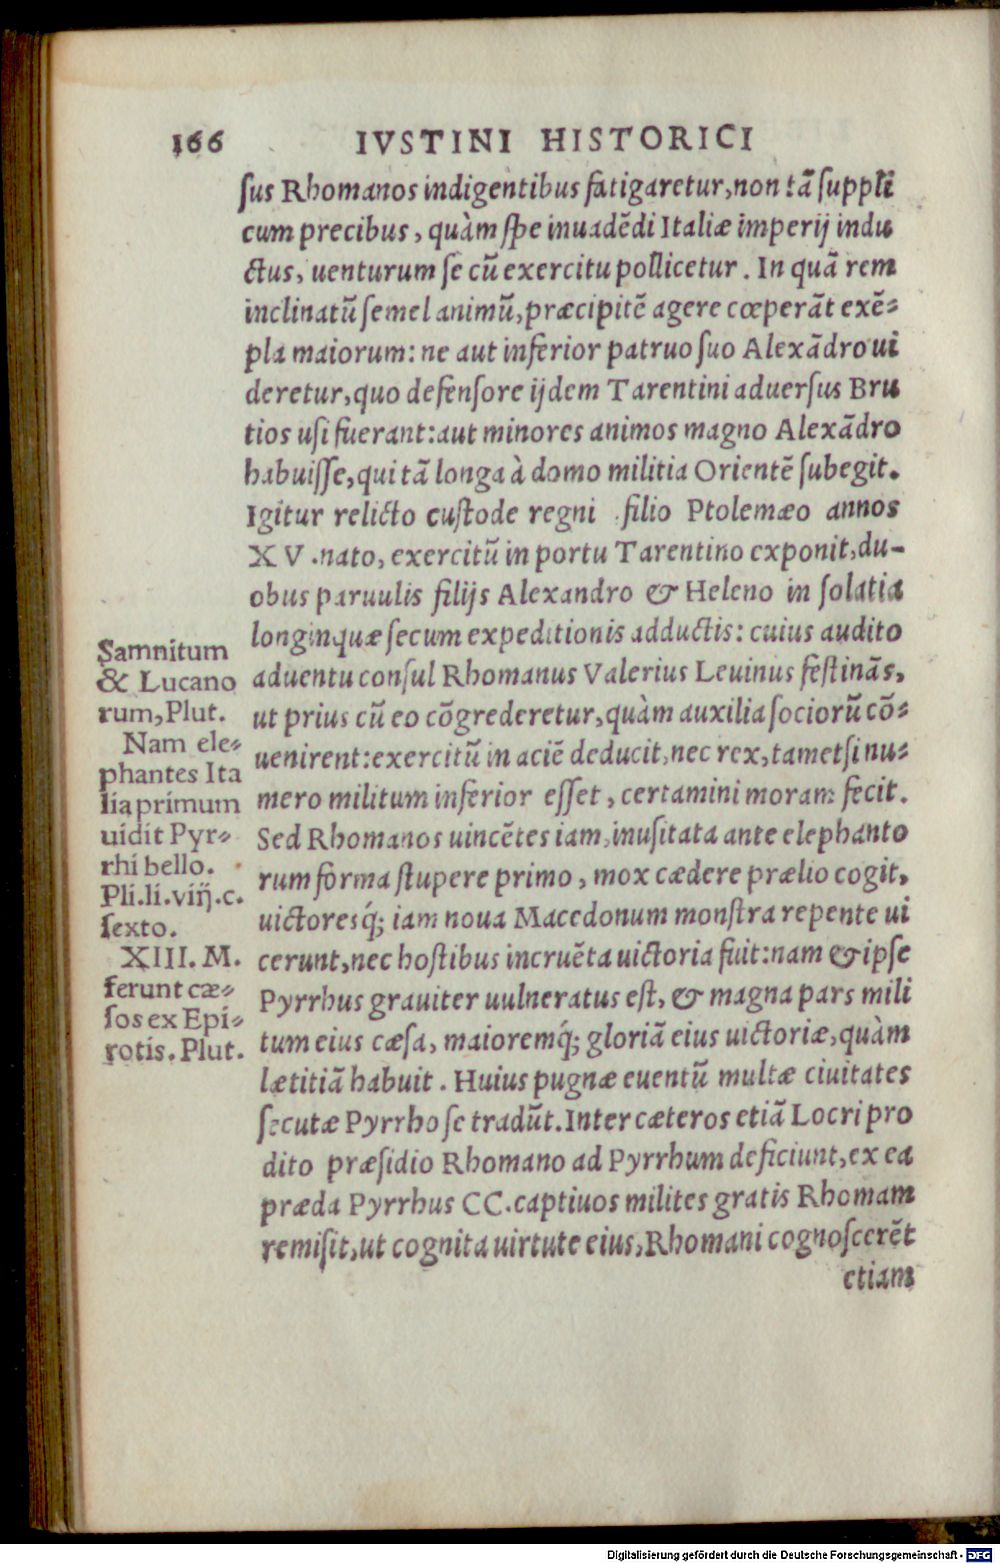 166 IVSTINI HISTORICI
sus Rhomanos indigentibus fatigaretur, non tã suppli
cum precibus, quàm spe inuadẽdi Italiæ imperij indu
ctus, uenturum se cũ exercitu pollicetur. In quã rem
inclinatũ semel animũ, præcipitẽ agere cœperãt exẽ-
pla maiorum: ne aut inferior patruo suo Alexãdro ui
deretur, quo defensore ijdem Tarentini aduersus Bru
tios usi fuerant: aut minores animos magno Alexãdro
habuisse, qui tã longa à domo militia Orientẽ subegit.
Igitur relicto custode regni filio Ptolemæo annos
XV. nato, exercitũ in portu Tarentino exponit, du-
obus paruulis filijs Alexandro & Heleno in solatia
longinquæ secum expeditionis adductis: cuius audito
aduentu consul Rhomanus Valerius Leuinus festinãs,
ut prius cũ eo cõgrederetur, quàm auxilia sociorũ cõ-
uenirent: exercitũ in aciẽ deducit, nec rex, tametsi nu-
mero militum inferior esset, certamini moram fecit.
Sed Rhomanos uincẽtes iam, inusitata ante elephanto
rum forma stupere primo, mox cædere prælio cogit,
uictoresq́; iam noua Macedonum monstra repente ui
cerunt, nec hostibus incruẽta uictoria fuit: nam & ipse
Pyrrhus grauiter uulneratus est, & magna pars mili
tum eius cæsa, maioremq́; gloriã eius uictoriæ, quàm
lætitiã habuit. Huius pugnæ euentũ multæ ciuitates
secutæ Pyrrho se tradũt. Inter cæteros etiã Locri pro
dito præsidio Rhomano ad Pyrrhum deficiunt, ex ea
præda Pyrrhus CC. captiuos milites gratis Rhomam
remisit, ut cognita uirtute eius, Rhomani cognoscerẽt
etiam
Samnitum
& Lucano
rum, Plut.
Nam ele-
phantes Ita
lia primum
uidit Pyr-
rhi bello.
Pli. li. viij. c.
sexto.
XIII. M.
ferunt cæ-
sos ex Epi-
rotis. Plut.
Digitalisierung gefördert durch die Deutsche Forschungsgemeinschaft - DFG